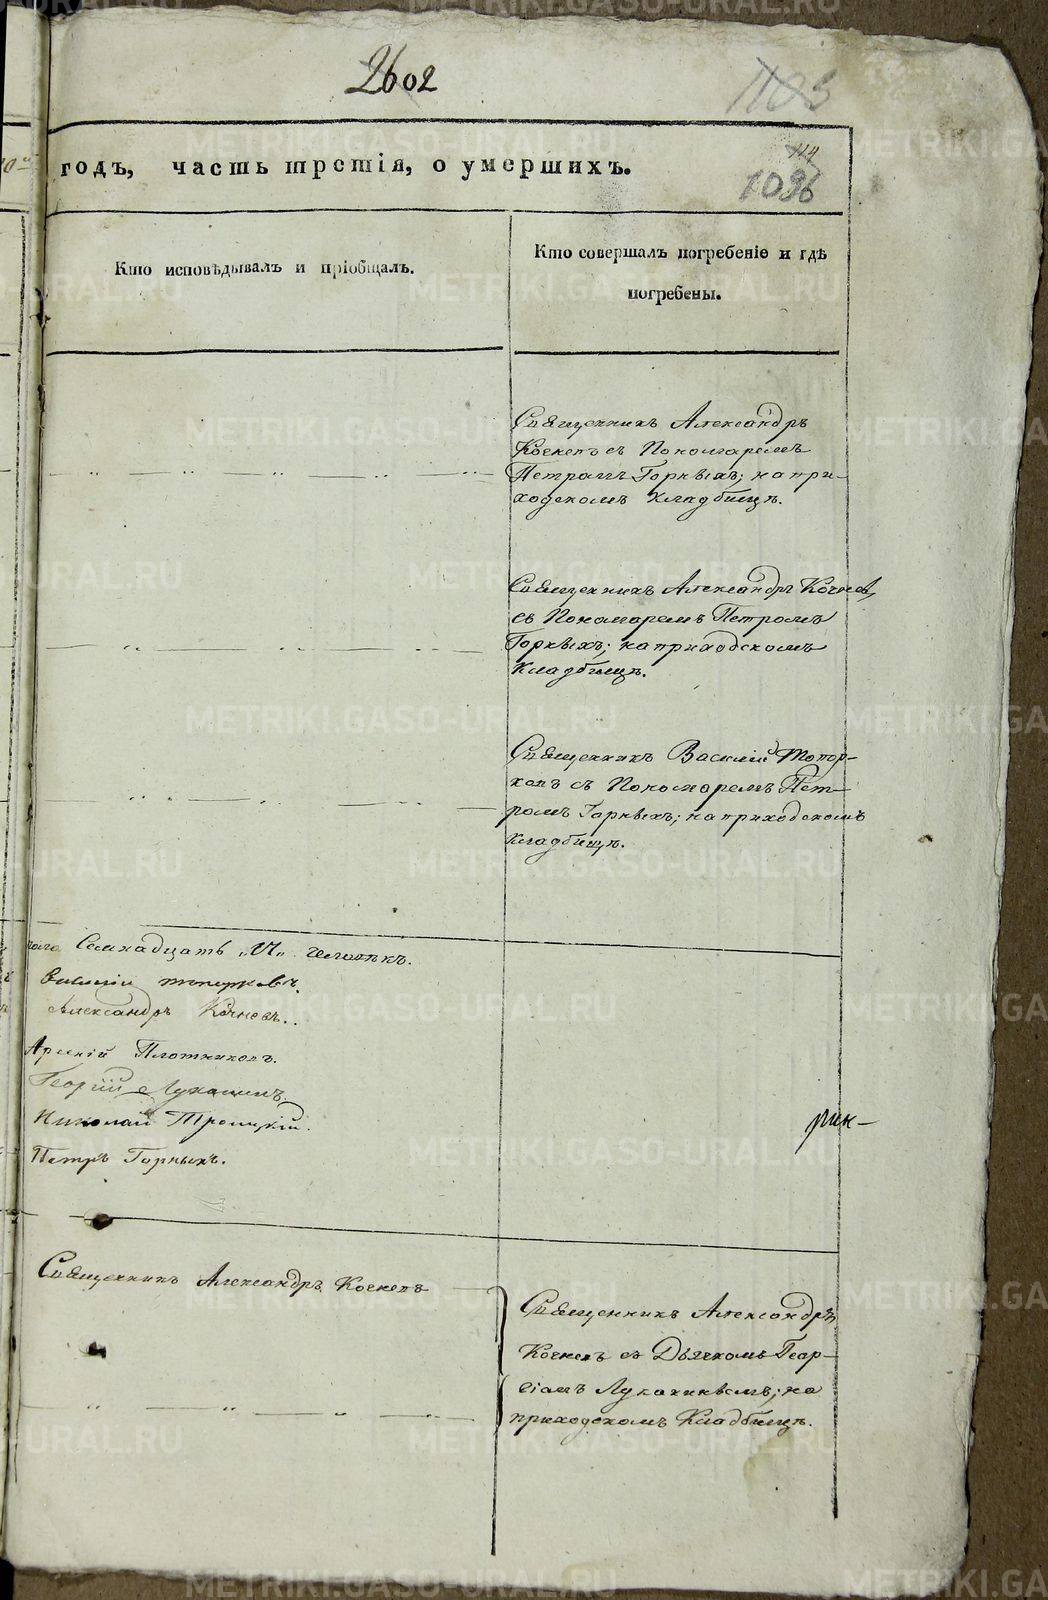 2602
1103
114
1096
годъ, часть третія, о умершихъ.
Кто исповѣдывалъ и пріобщалъ.
Кто совершалъ погребеніе и гдѣ
погребены.
Священникъ Александръ
Кочневъ съ Пономаремъ
Петромъ Горныхъ; на при-
ходскомъ кладбищѣ.
Священникъ Александръ Кочнев,
съ Пономаремъ Петромъ
Горныхъ; на приходскомъ
кладбищѣ.
Священникъ Василій Топор-
ковъ съ Пономаремъ Пет-
ромъ Горныхъ; на приходскомъ
кладбищѣ.
Семнадцать „17„ человѣкъ.
Василій Топорковъ.
Александръ Кочневъ.
Арсеній Плотниковъ.
Георгій Лукашинъ.
Николай Троицкій.
Петръ Горныхъ.
Священникъ Александръ Кочневъ
Священникъ Александръ
Кочневъ съ Дьячкомъ Геор-
гіемъ
на
приходскомъ Кладбищѣ.
METRIKI.GASO-URAL.RU